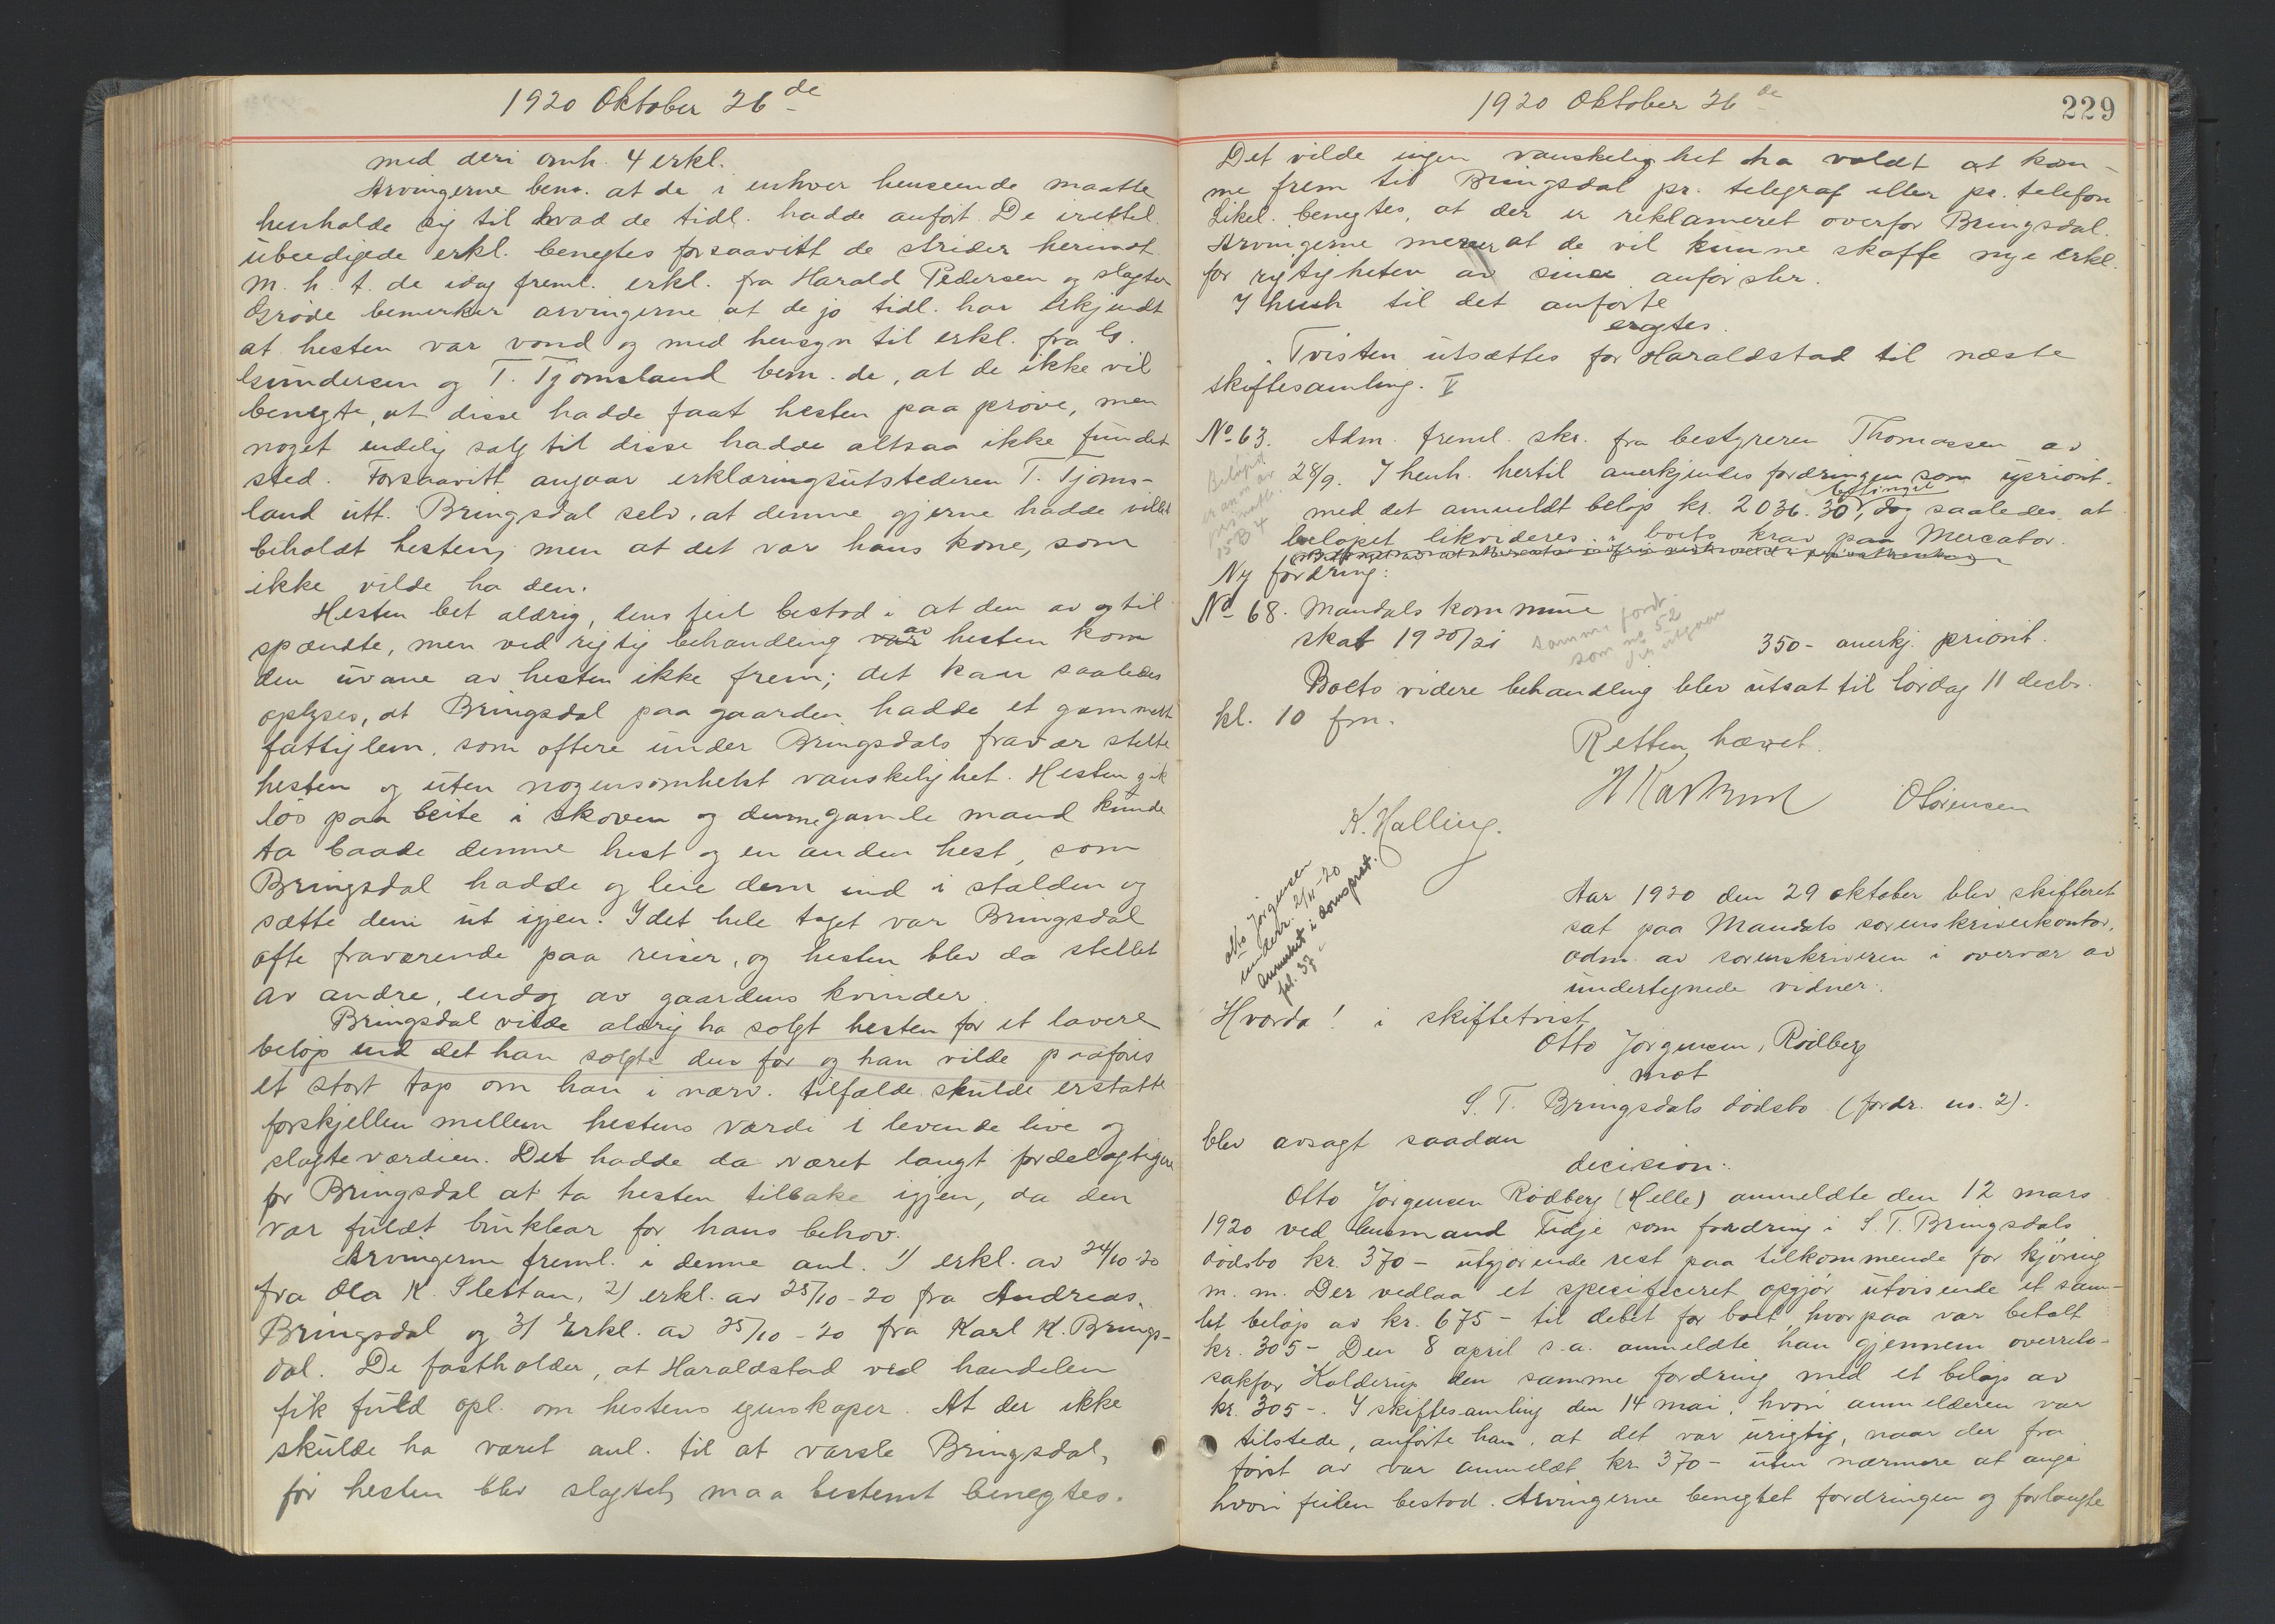 1920 Oktober 26de
med deri omh. 4 erkl.
Arvingerne bem. at de i enhver henseende maatte
henholde sig til hvad de tidl. hadde anført. De irettel.
ubeedigede erkl. benegtes forsaavitt de strider herimot.
M. h. t. de idag freml. erkl. fra Harald Pedersen og slagter
Grøde bemerker arvingerne at de jo tidl. har erkjendt
at hesten var vond og med hensyn til erkl. fra G.
Gundersen og T. Tjomsland bem. de, at de ikke vil
benegte, at disse hadde faat hesten paa prøve, men
noget endelig salg til disse hadde altsaa ikke fundet
sted. Forsaavitt angaar erklæringsutstederen T. Tjoms-
land utt. Bringsdal selv, at denne gjerne hadde villet
beholdt hesten, men at det var hans kone, som
ikke vilde ha den.
Hesten bet aldrig, dens feil bestod i at den av og til
spændte, men ved rigtig behandling av hesten kom
den uvane av hesten ikke frem; det kan saaledes
oplyses, at Bringsdal paa gaarden hadde et gammelt
fattiglem, som oftere under Bringsdals fravær stelte
hesten og uten nogensomhelst vanskelighet. Hesten gik
løs paa beite i skoven og denne gamle mand kunde
ta baade denne hest og en anden hest, som
Bringsdal hadde og leie dem ind i stalden og
sætte dem ut igjen. I det hele taget var Bringsdal
ofte fraværende paa reiser, og hesten blev da stellet
av andre, endog av gaardens kvinder.
Bringsdal vilde aldrig ha solgt hesten for et lavere
beløp end det han solgte den for og han vilde paaføres
et stort tap om han i nærv. tilfælde skulde erstatte
forskjellen mellem hestens værdi i levende live og
slagteværdien. Det hadde da været langt fordelagtigere
for Bringsdal at ta hesten tilbake igjen, da den
var fuldt brukbar for hans behov.
Arvingerne freml. i denne anl. 1) erkl. av 24/10-20
fra Ola K. Slettan, 2) erkl. av 25/10-20 fra Andreas
Bringsdal og 3) Erkl. av 25/10-20 fra Karl K. Brings-
dal. De fastholder, at Haraldstad ved handelen
fik fuld opl. om hestens egenskaper. At der ikke
skulde ha været anl. til at varsle Bringsdal,
før hesten blev slagtet, maa bestemt benegtes.
1920 Oktober 26de
229
Det vilde ingen vanskelighet ha voldt at kom-
me frem til Bringsdal pr. telegraf eller pr. telefon
Likel. benegtes, at der er reklameret overfor Bringsdal.
Arvingerne mener at de vil kunne skaffe nye erkl.
for rigtigheten av sine anførsler.
I henh til det anførte
eragtes.
Tvisten utsættes for Haraldstad til næste
skiftesamling. V
No 63. Adm. freml. skr. fra bestyreren Thomassen av
28/9. I henh. hertil anerkjendes fordringen som uprioit.
betinget
med det anmeldt beløp kr. 2036.30, dog saaledes at
beløpet likvideres i boets krav paa Mercator.
Ny fordring:
No 68. Mandals kommune
samme fordr.
som no 52
skat 1920/21 350- anerkj. priorit.
Boets videre behandling blev utsat til lørdag 11 decbr.
kl. 10 fm.
Retten hævet.
O Sørensen
K. Halling.
Otto Jørgensen
underr. 2/11-20
anmerket i domsprot.
fol. 37
Aar 1920 den 29 oktober blev skifteret
sat paa Mandals sorenskriverkontor,
adm. av sorenskriveren i overvær av
undertegnede vidner.
Hvorda! i skiftetvist
Otto Jørgensen, Rødberg
mot
S. T. Bringsdals dødsbo (fordr. no. 2).
blev avsagt saadan
decision:
Otto Jørgensen Rødberg (Helle) anmeldte den 12 mars
1920 ved lensmand Tidje som fordring i S. T. Bringsdals
dødsbo kr. 370- utgjørende rest paa tilkommende for kjøring
m. m. Der vedlaa et specificeret opgjør utvisende et sam-
let beløp av kr. 675- til debet for boet, hvorpaa var betalt
kr. 305- Den 8 april s.a. anmeldte han gjennem overrets-
sakfør Kolderup den samme fordring med et beløp av
kr. 305-. I skiftesamling den 14 mai, hvori anmelderen var
tilstede, anførte han, at det var urigtig, naar der fra
først av var anmeldt kr 370- uten nærmere at angi
hvori feilen bestod. Arvingerne benegtet fordringen og forlangte